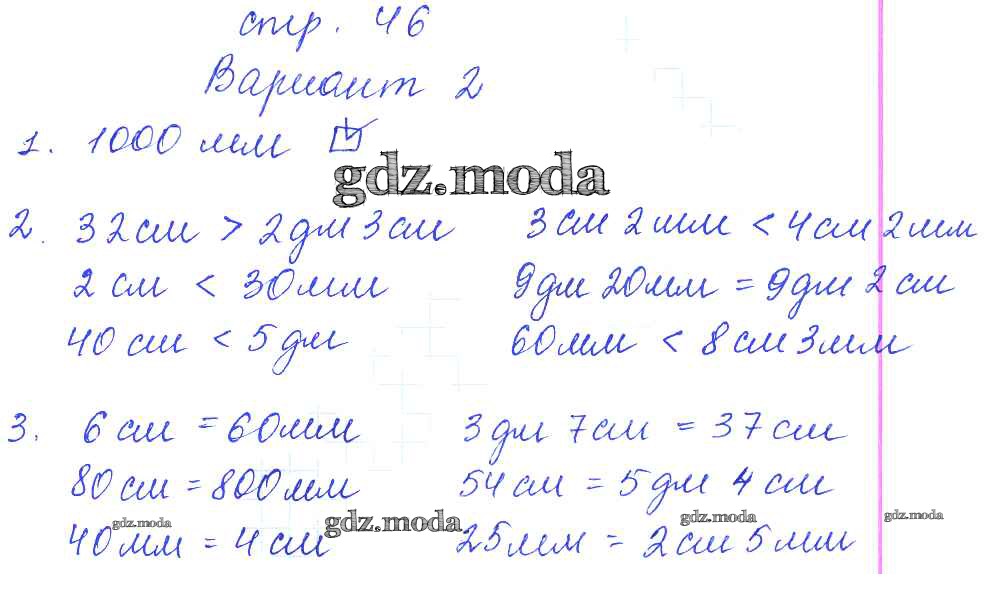 стр. 46
Вариант 2
1. 1000 мм
gdz.moda
2. 32 см > 2 дм 3 см 3 см 2 мм < 4 см 2 мм
2 см < 30 мм 9 дм 20 мм = 9 дм 2 см
40 см < 5 дм 60 мм < 8 см 3 мм
3. 6 см = 60 мм 3 дм 7 см = 37 см
80 см = 800 мм 54 см = 5 дм 4 см
gdz.moda gdz.moda gdz.moda gdz.moda
40 мм = 4 см 25 мм = 2 см 5 мм